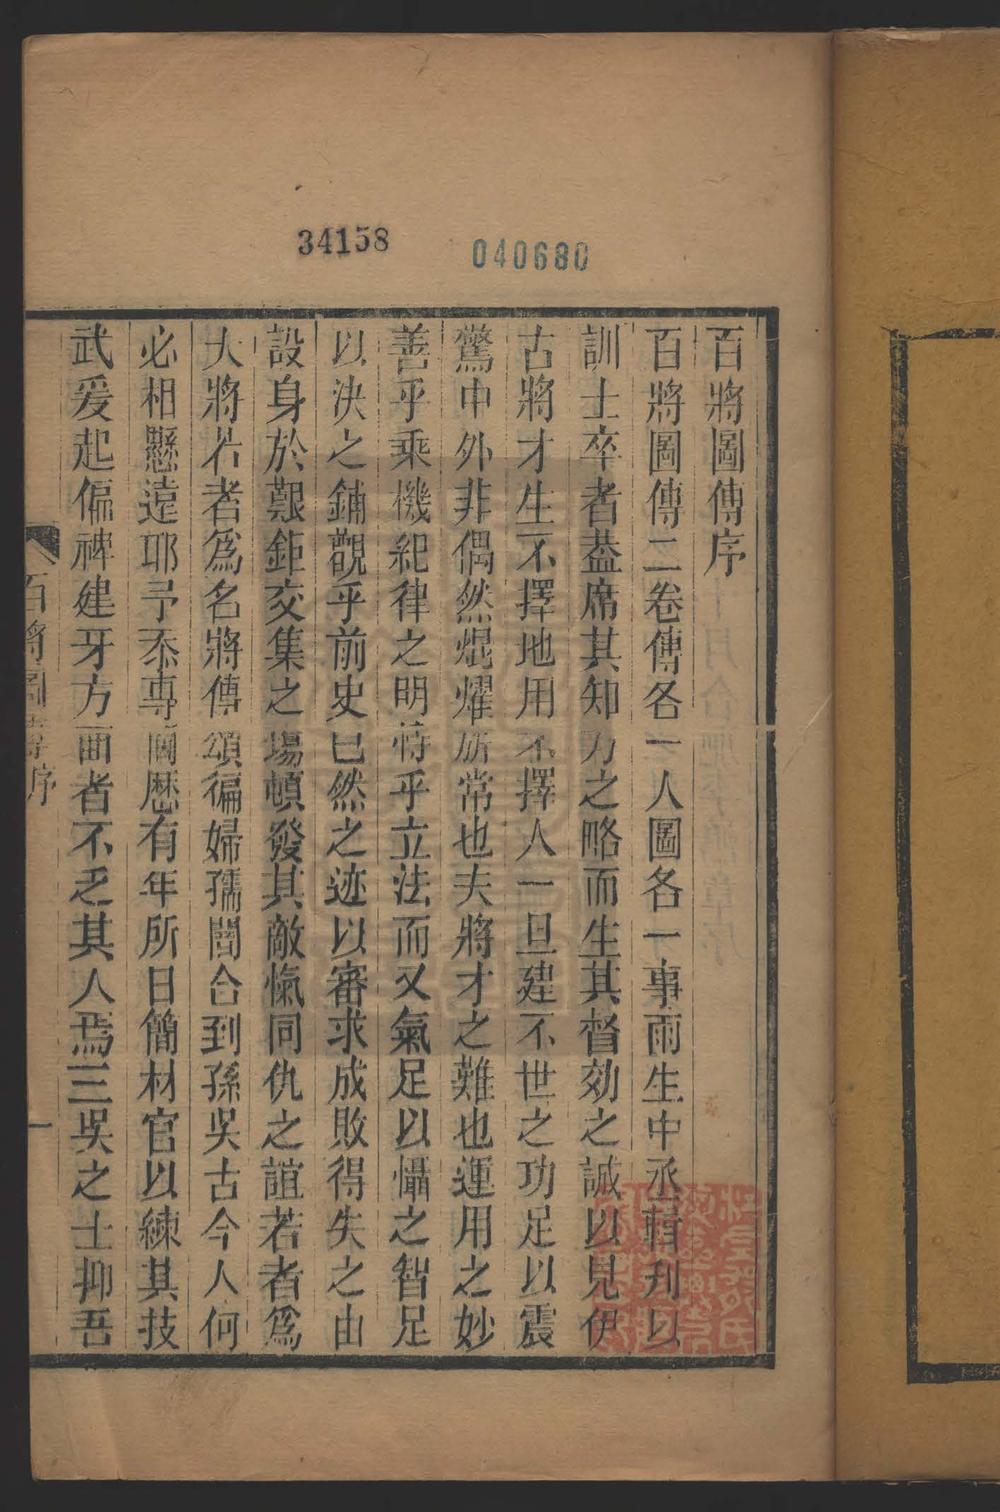 34158
040680
百將圖傳序
百將圖傳二卷傳各一人圖各一事雨生中丞輯刋以
訓士卒者葢席其知方之略而生其督効之誠以見伊
古將才生不擇地用不擇人一旦建不世之功足以震
驚中外非偶然焜燿旂常也夫將才之難也運用之妙
善乎乘機紀律之明恃乎立法而又氣足以懾之智足
以決之鋪觀乎前史已然之迹以審求成敗得失之由
設身於艱鉅交集之場頓發其敵愾同仇之誼若者爲
大將若者爲名將傳頌徧婦孺闇合到孫吳古今人何
必相懸遠耶予忝專閫歷有年所日簡材官以練其技
武爰起偏裨建牙方面者不乏其人焉三吳之士抑吾
百將圖傳序
一